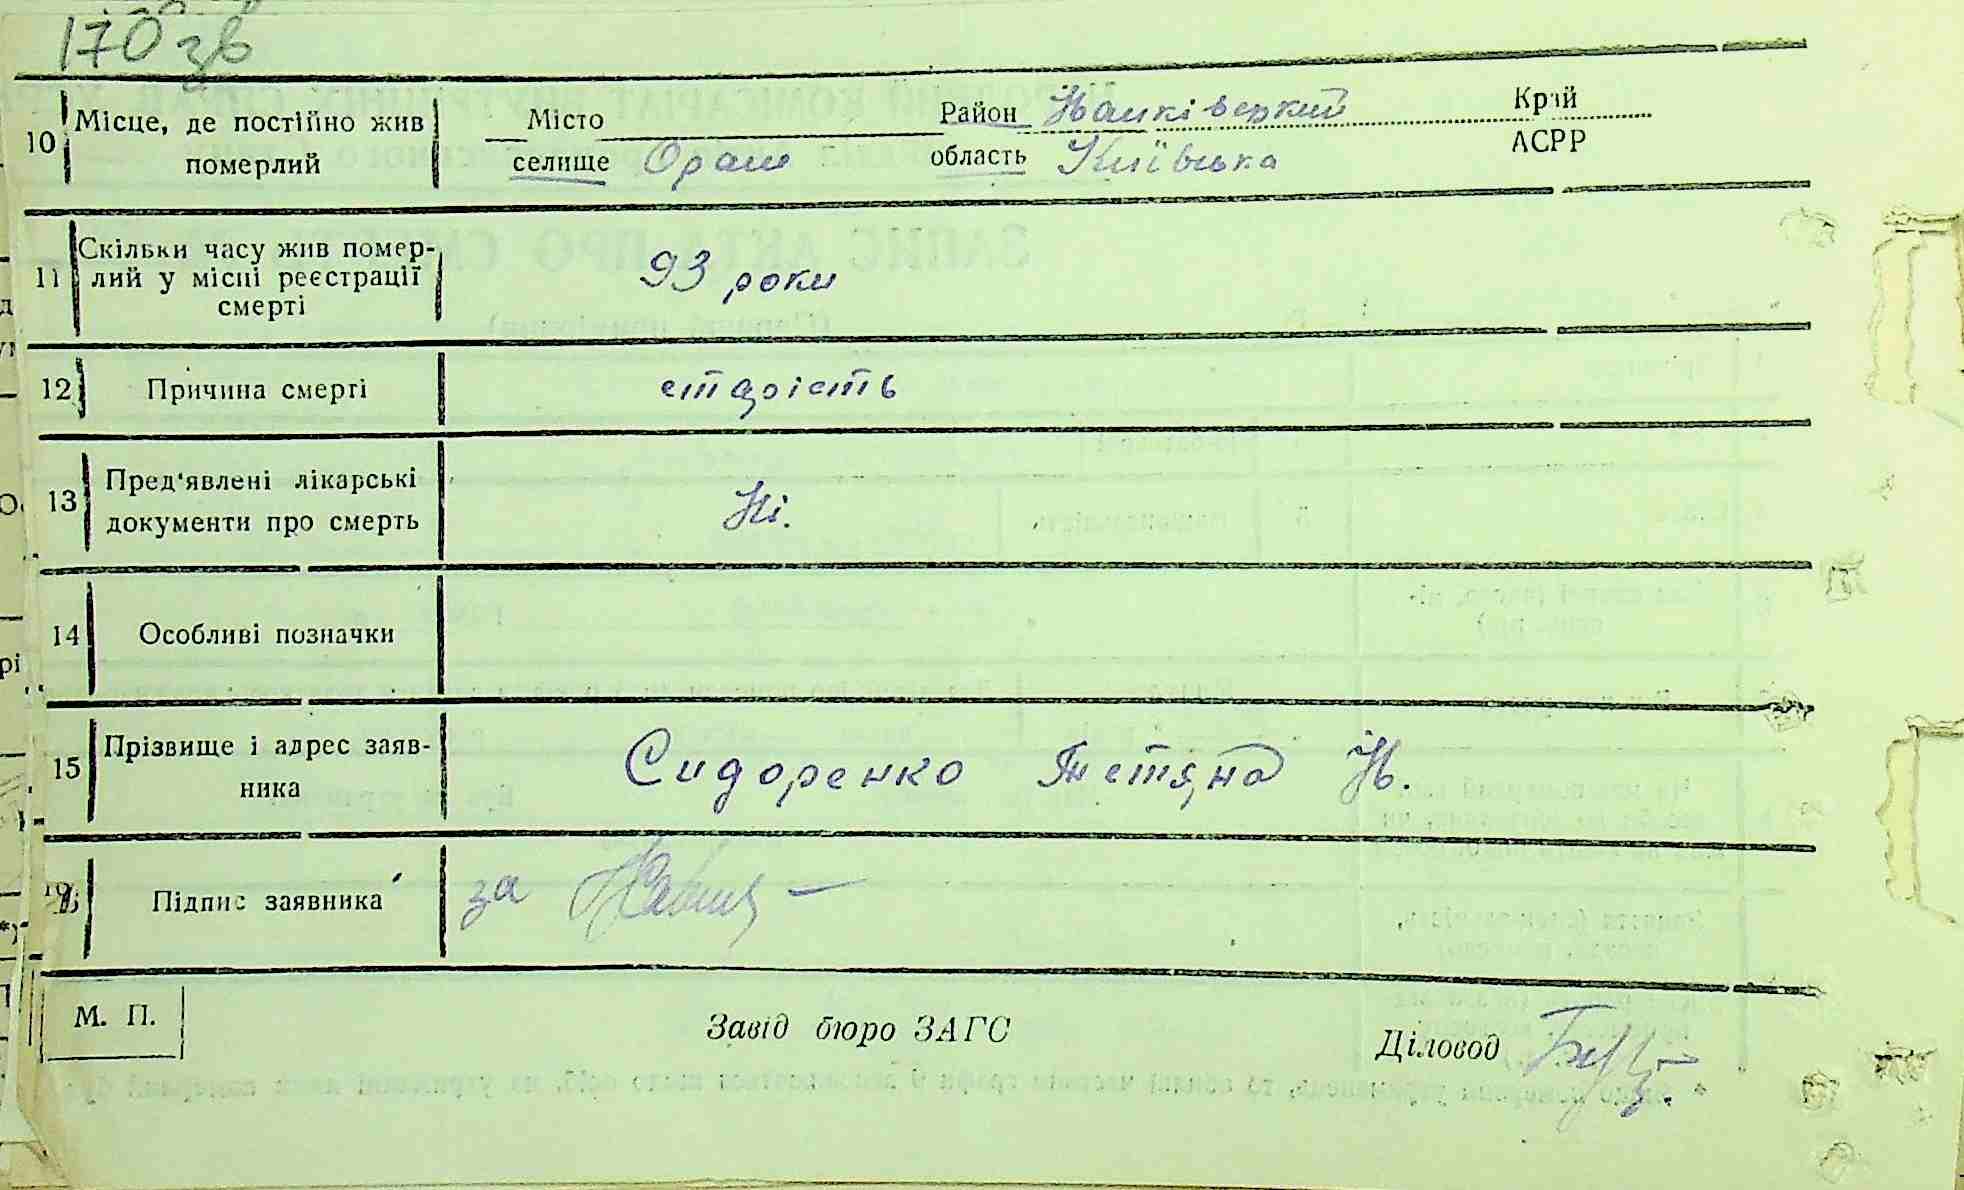 170 зв
10 Місце, де постійно жив померлий
Місто
селище Ораш
Район
область Київська
Край
АСРР
11 Скільки часу жив помер-
лий у місці реєстрації
смерті
93 роки
12 Причина смерті
старість
13 Пред'явлені лікарські
документи про смерть
Ні.
14 Особливі позначки
15 Прізвище і адрес заяв-
ника
Сидоренко Тетяна Н.
Підпис заявника
за
М. П.
Завід бюро ЗАГС
Діловод